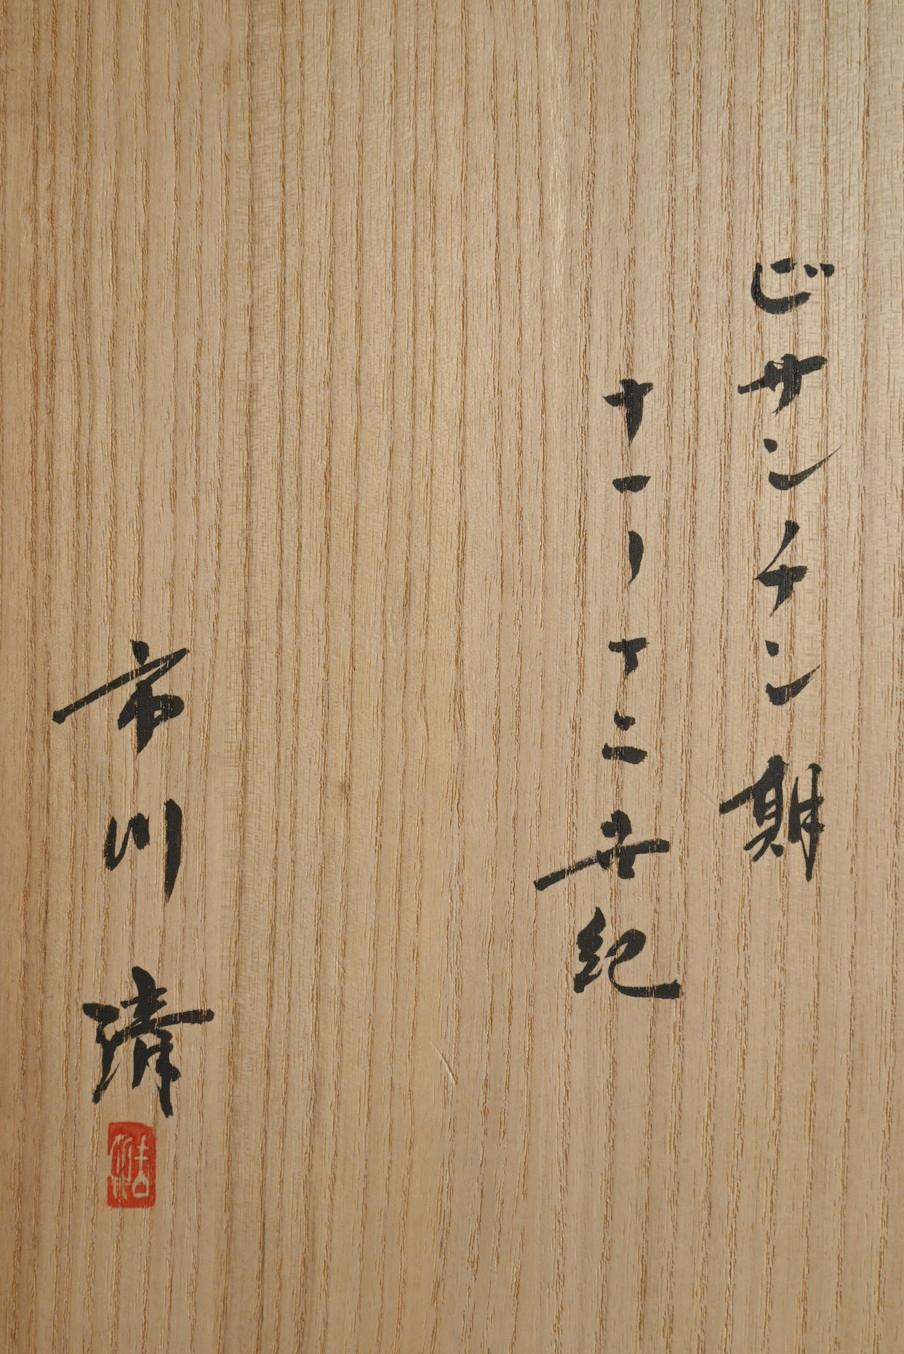 ビサンチン期
十一〜十二世紀
市川清